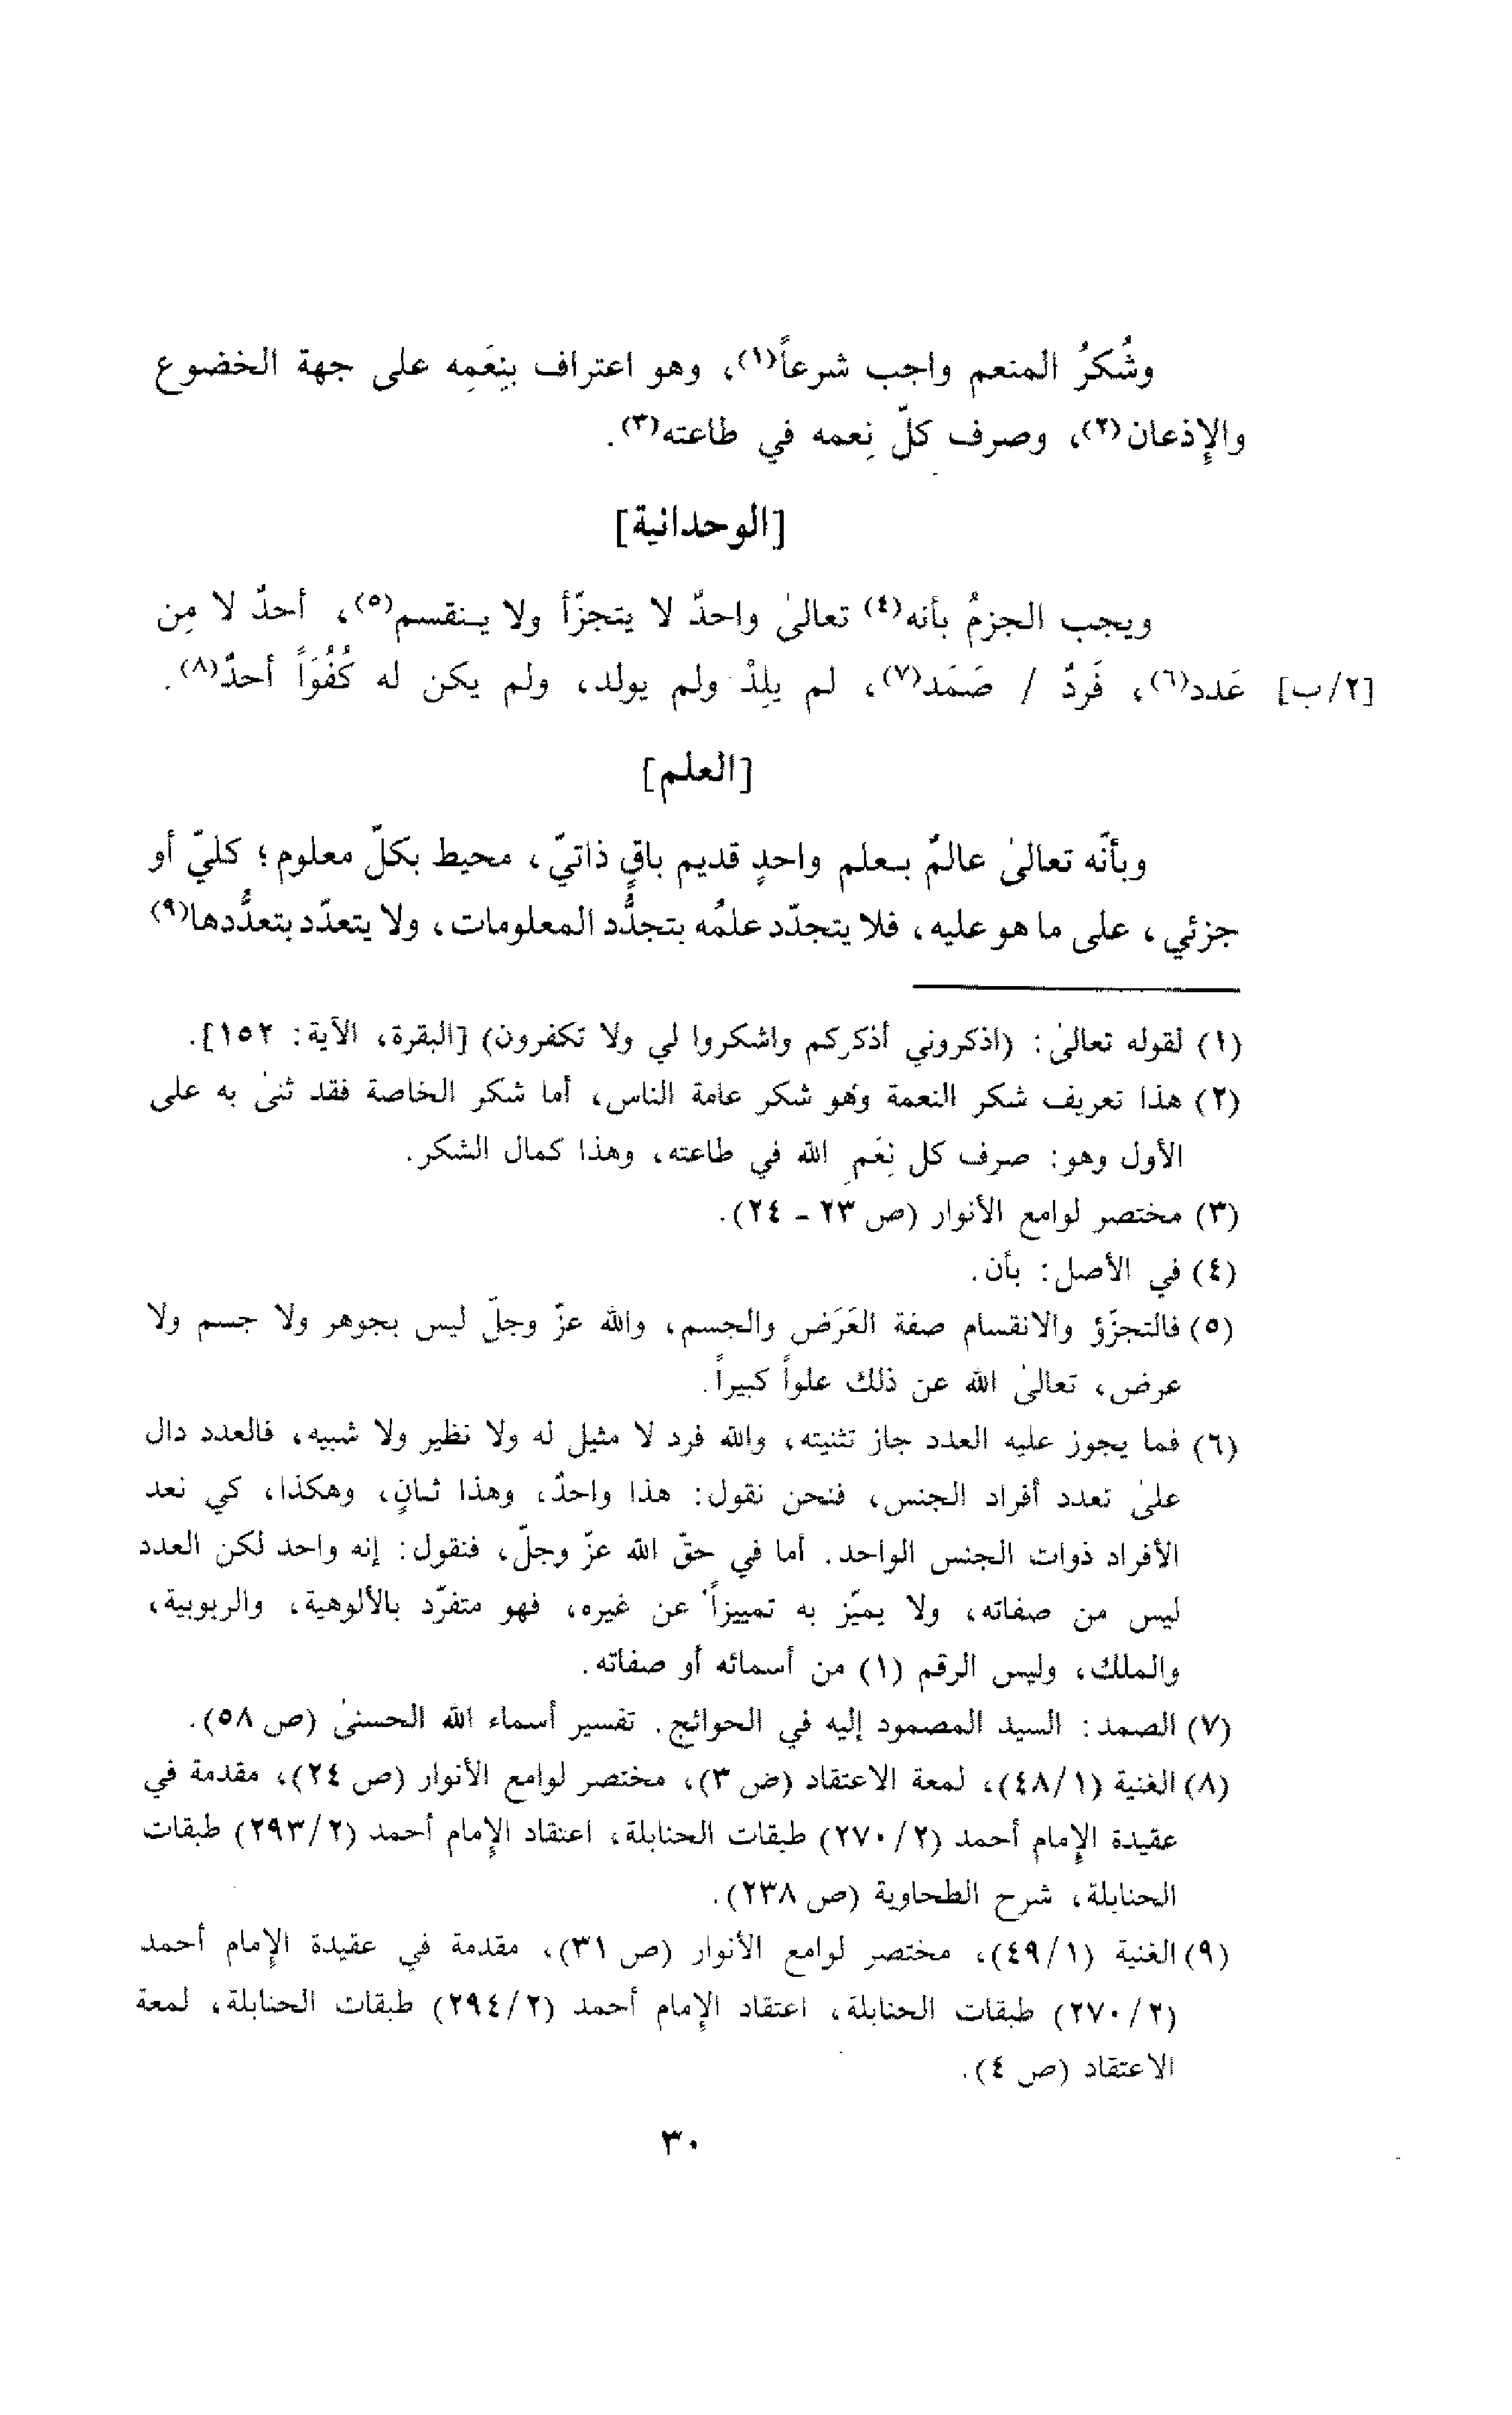 وشُكرُ المنعم واجب شرعاً(١)، وهو اعتراف بنِعَمِه على جهة الخضوع
والإذعان(٢)، وصرف كلّ نِعمه في طاعته(٣).
[الوحدانية]
ويجب الجزمُ بأنه(٤) تعالىٰ واحدٌ لا يتجزّأ ولا ينقسم(٥)، أحدٌ لا مِن
[٢/ب] عَدد(٦)، فَردٌ / صَمَد(٧)، لم يلِدْ ولم يولد، ولم يكن له كُفُوَاً أحدٌ(٨).
[العلم]
وبأنّه تعالىٰ عالمٌ بعلم واحدٍ قديم باقٍ ذاتيّ، محيط بكلّ معلوم؛ كليّ أو
جزئي، على ما هو عليه، فلا يتجدّد علمُه بتجدُّد المعلومات، ولا يتعدّد بتعدُّدها(٩)
(١) لقوله تعالىٰ: (اذكروني أذكركم واشكروا لي ولا تكفرون) [البقرة، الآية: ١٥٢].
(٢) هذا تعريف شكر النعمة وهو شكر عامة الناس، أما شكر الخاصة فقد ثنىٰ به على
الأول وهو: صرف كل نِعَمِ الله في طاعته، وهذا كمال الشكر.
(٣) مختصر لوامع الأنوار (ص ٢٣ - ٢٤).
(٤) في الأصل: بأن.
(٥) فالتجزّؤ والانقسام صفة العَرَض والجسم، والله عزّ وجلّ ليس بجوهر ولا جسم ولا
عرض، تعالىٰ الله عن ذلك علواً كبيراً.
(٦) فما يجوز عليه العدد جاز تثنيته، والله فرد لا مثيل له ولا نظير ولا شبيه، فالعدد دال
علىٰ تعدد أفراد الجنس، فنحن نقول: هذا واحدٌ، وهذا ثانٍ، وهكذا، كي نعد
الأفراد ذوات الجنس الواحد. أما في حقّ الله عزّ وجلّ، فنقول: إنه واحد لكن العدد
ليس من صفاته، ولا يميّز به تمييزاً عن غيره، فهو متفرّد بالألوهية، والربوبية،
والملك، وليس الرقم (١) من أسمائه أو صفاته.
(٧) الصمد: السيد المصمود إليه في الحوائج. تفسير أسماء الله الحسنىٰ (ص ٥٨).
(٨) الغنية (٤٨/١)، لمعة الاعتقاد (ص ٣)، مختصر لوامع الأنوار (ص ٢٤)، مقدمة في
عقيدة الإمام أحمد (٢٧٠/٢) طبقات الحنابلة، اعتقاد الإمام أحمد (٢٩٣/٢) طبقات
الحنابلة، شرح الطحاوية (ص ٢٣٨).
(٩) الغنية (٤٩/١)، مختصر لوامع الأنوار (ص ٣١)، مقدمة في عقيدة الإمام أحمد
(٢٧٠/٢) طبقات الحنابلة، اعتقاد الإمام أحمد (٢٩٤/٢) طبقات الحنابلة، لمعة
الاعتقاد (ص ٤).
٣٠